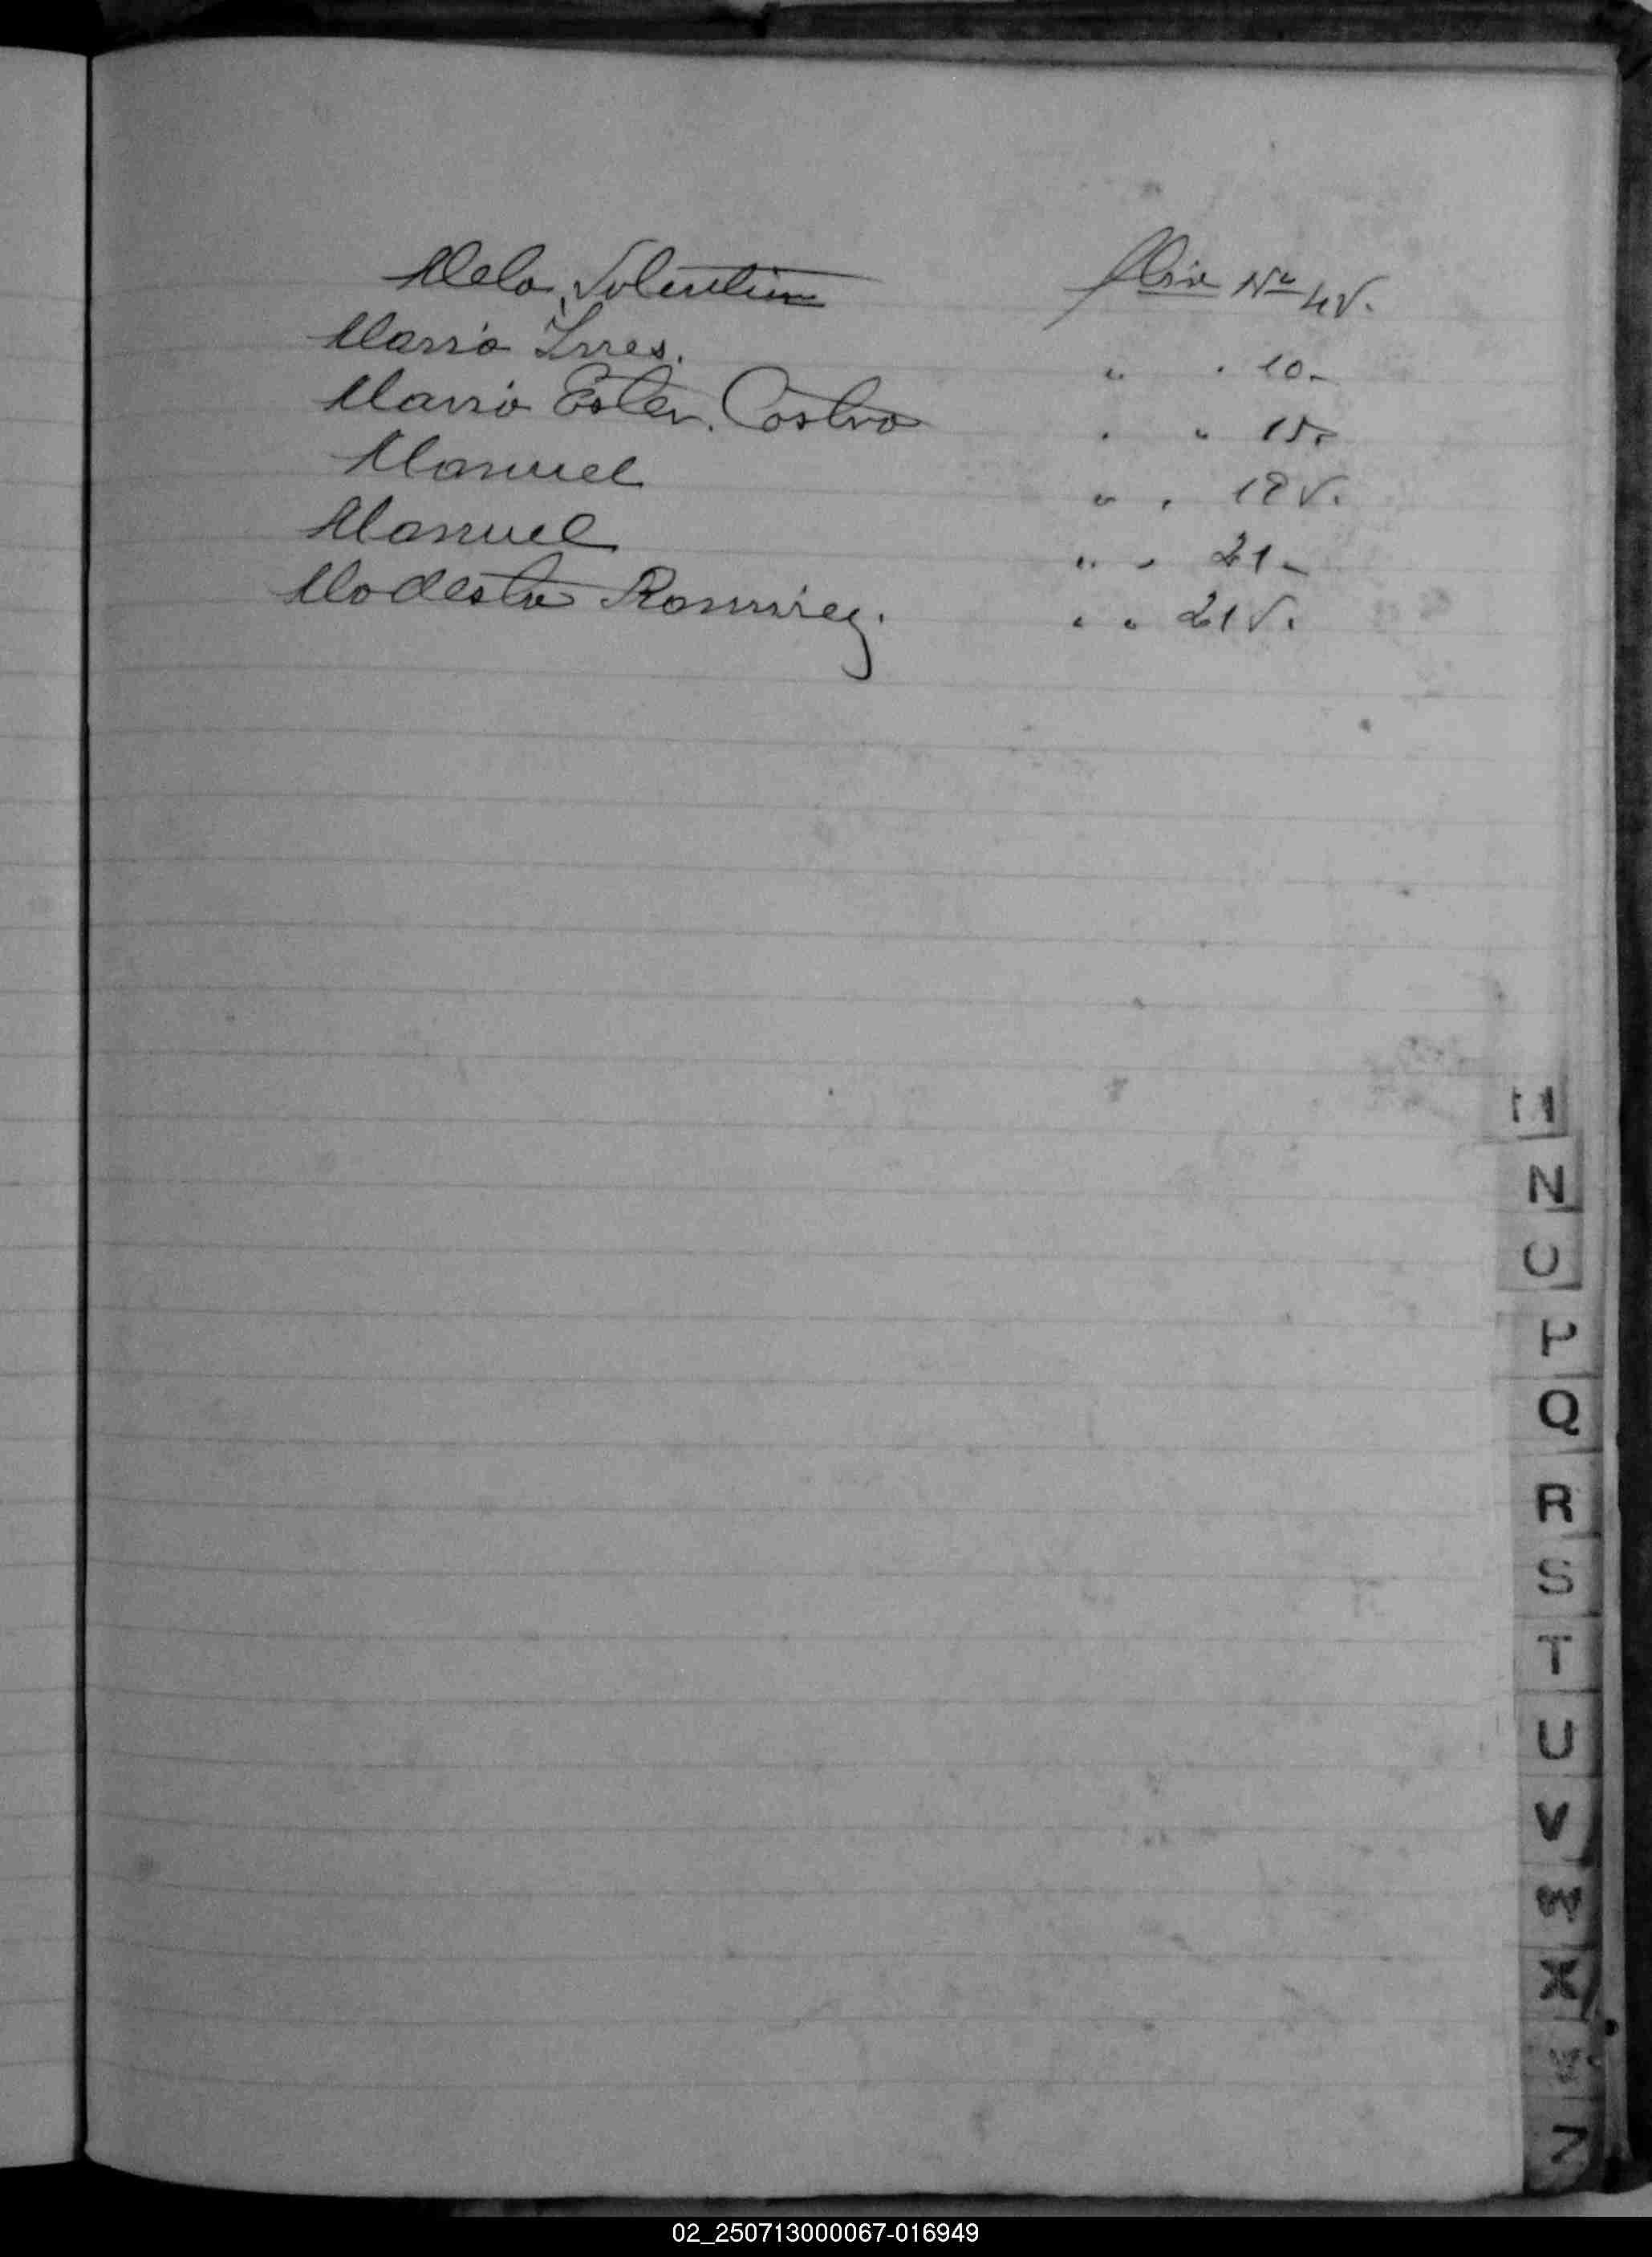 Melo, Valentin foja No 4 v.
Maria Ines. " " 10-
Maria Ester. Castro " " 15.
Manuel " " 18 v.
Manuel " " 21-
Modesto Ramirez. " " 21 v.
M
N
O
P
Q
R
S
T
U
V
W
X
Z
02_250713000067-016949